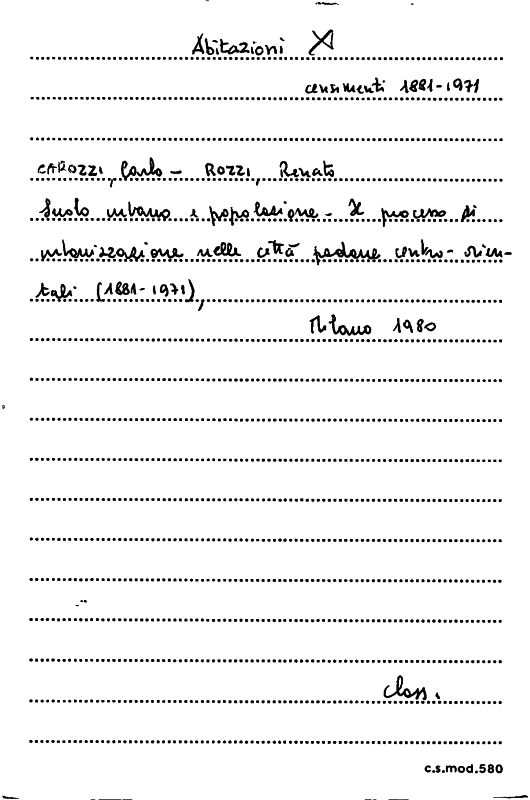 Abitazioni XI
censimenti 1881-1971
CAROZZI, Carlo - ROZZI, Renato
Suolo urbano e popolazione - Il processo di
urbanizzazione nelle città padane centro-orien-
tali (1881-1971),
Milano 1980
class.
c.s.mod.580